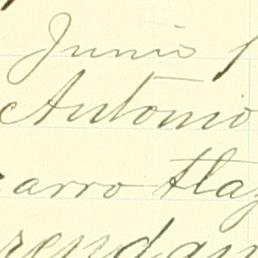 Junio 1
Antonio
arro Haz
rendan